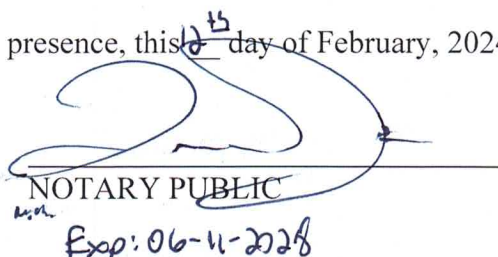 presence, this 12th day of February, 2024
NOTARY PUBLIC
Exp: 06-11-2028